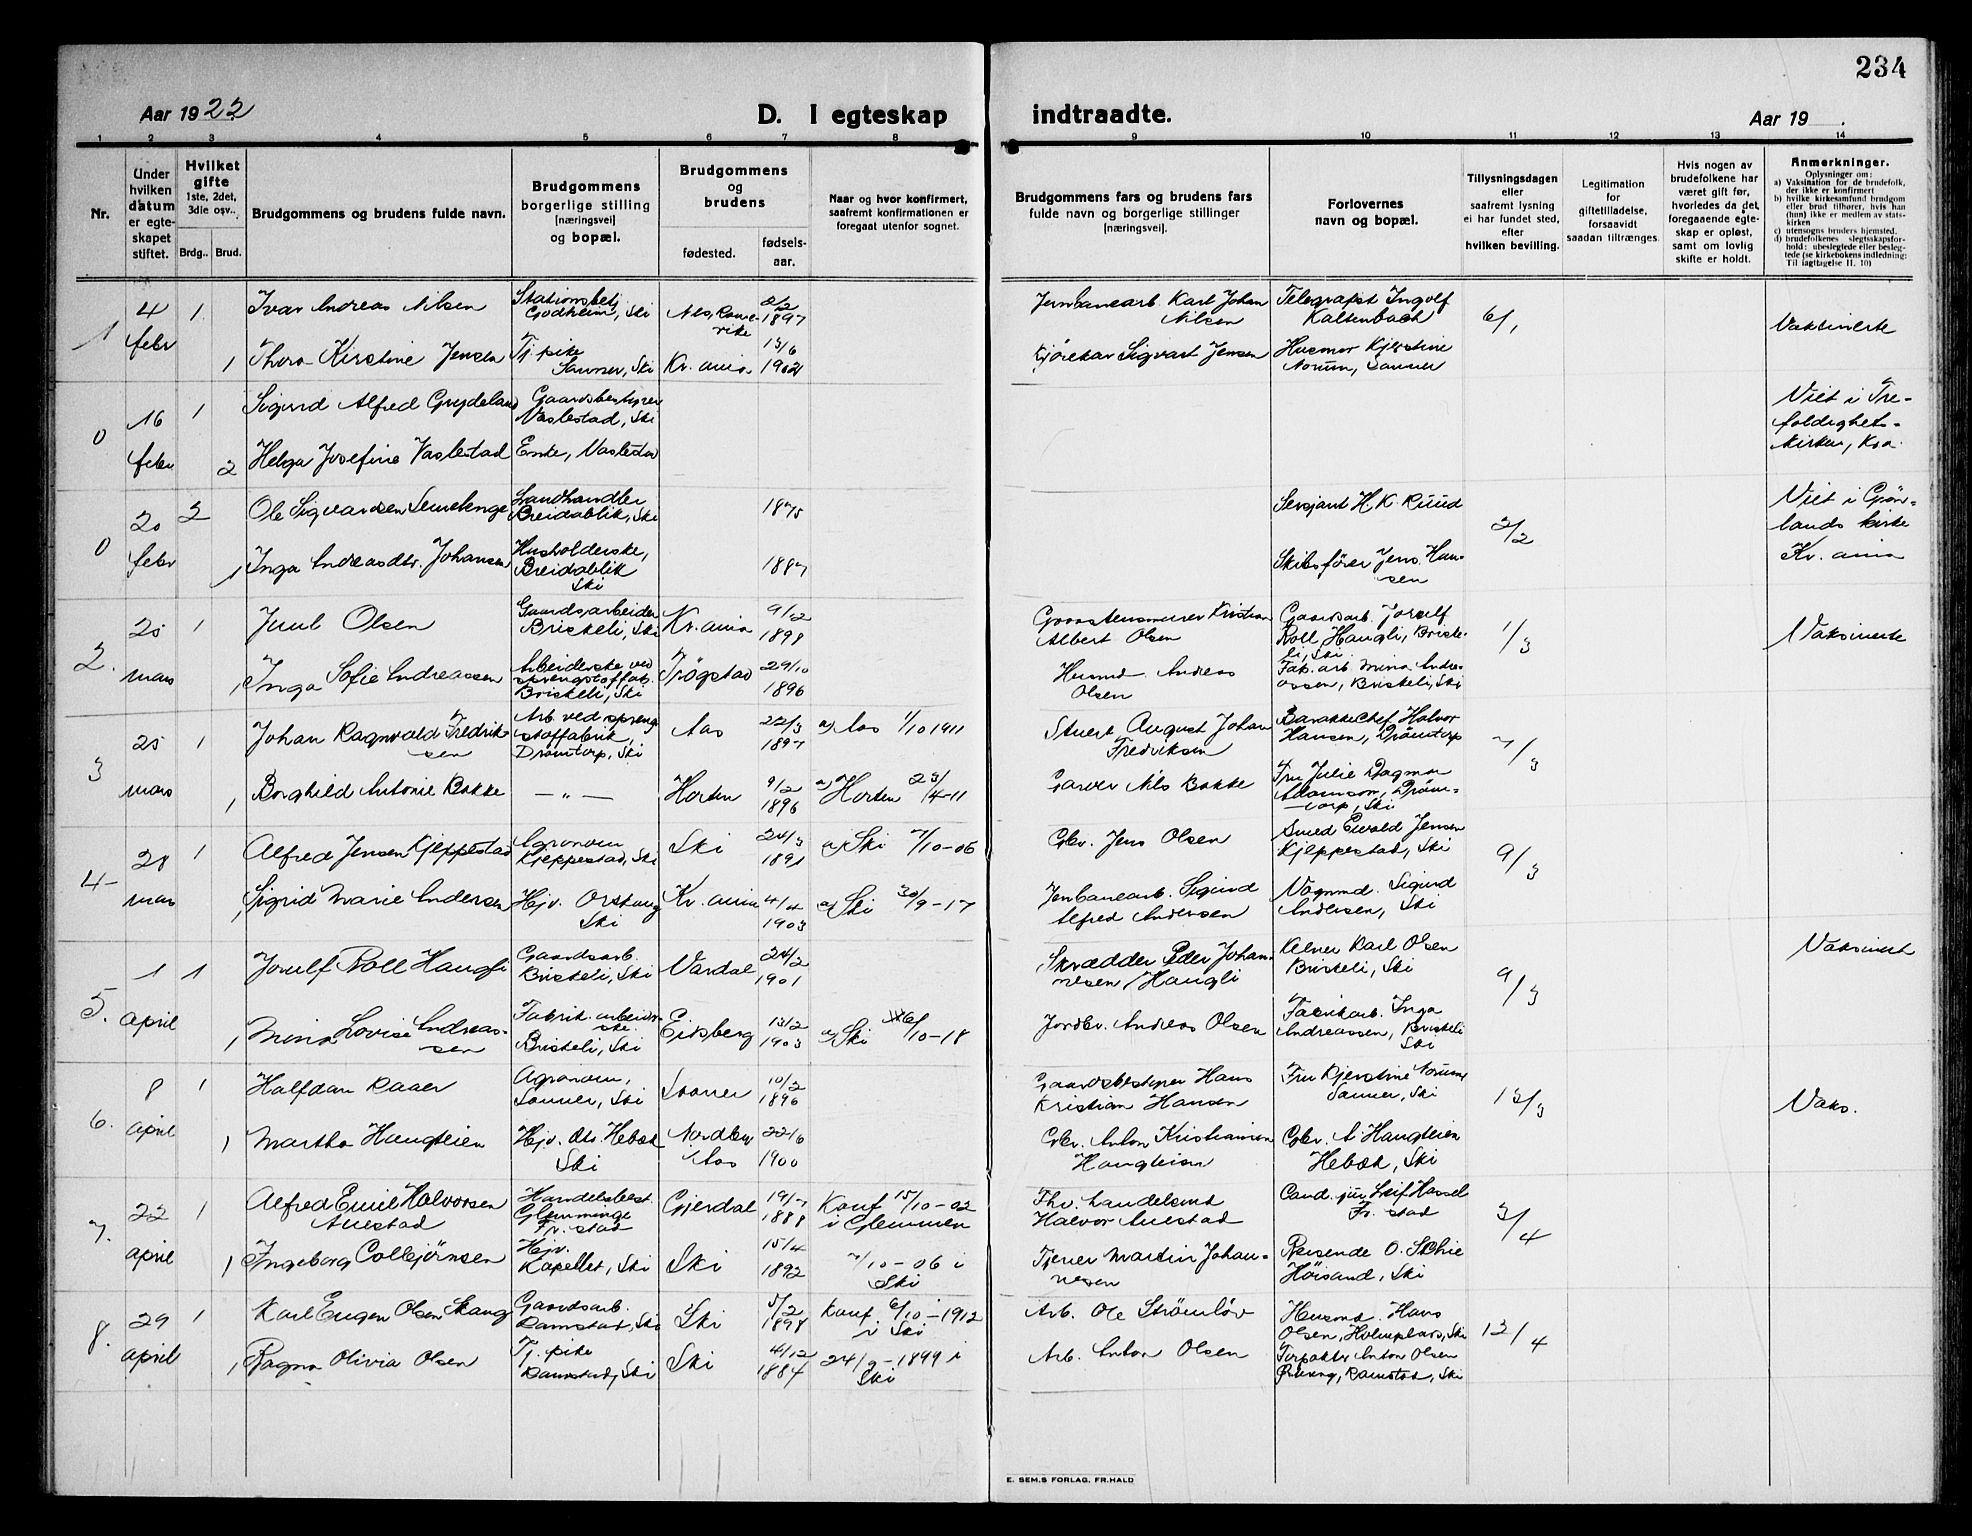 234
Aar 1922. D. I egteskap indtraadte. Aar 19 .
1 2 3 4 5 6 7 8 9 10 11 12 13 14
Nr.
Under hvilken datum er egteskapet stiftet.
Hvilket gifte 1ste, 2det, 3die osv..
Brdg.. Brud.
Brudgommens og brudens fulde navn.
Brudgommens borgerlige stilling [næringsvei] og bopæl.
Brudgommens og brudens
fødested. fødselsaar.
Naar og hvor konfirmert, saafremt konfirmationen er foregaat utenfor sognet.
Brudgommens fars og brudens fars fulde navn og borgerlige stillinger [næringsvei].
Forlovernes navn og bopæl.
Tillysningsdagen eller saafremt lysning ei har fundet sted, efter hvilken bevilling.
Legitimation for giftetilladelse, forsaavidt saadan tiltrænges.
Hvis nogen av brudefolkene har været gift før, hvorledes da det foregaaende egteskap er opløst, samt om lovlig skifte er holdt.
Anmerkninger.
Oplysninger om:
a) Vaksination for de brudefolk, der ikke er konfirmert
b) hvilke kirkesamfund brudgom eller brud tilhører, hvis han (hun) ikke er medlem av statskirken
c) utensogns bruders hjemsted.
d) brudefolkenes slegtsskapsforhold: ubeslegtede eller beslegtede (se kirkebokens indledning: Til iagttagelse II. 10)
1 4 febr 1 Ivar Andreas Nilsen Stationsbetj. Godheim, Ski Nes, Romerike 1897 Jernbanearb. Karl Johan Nilsen Telegrafist Ingolf Kaltenbach 6/1 Vaksinerte
1 Thora Kirstine Jensen Tj. pike Sanner, Ski Kr.ania 13/6 1902 Kjørekar Sigvart Jensen Husmor Kjerstine Norum, Sanner
0 16 febr 1 Sigurd Alfred Grydeland Gaardsbestyrer Vaslestad, Ski Viet i Trefoldighetskirken, Kra.
2 Helga Josefine Vaslestad Enke, Vaslestad
0 20 febr 2 Ole Sigvardsen Semelenge Landhandler Breidablik, Ski 1875 Sersjant H K Ruud 2/2 Viet i Grønlands kirke Kr.ania
1 Inga Andreasdtr. Johansen Husholderske, Breidablik Ski 1887 Skibsfører Jens Hansen
2. 25 mars 1 Juul Olsen Gaardsarbeider Briskeli, Ski Kr.ania 9/2 1898 Graastensmurer Kristian Albert Olsen Gaardsarb. Jorulf Roll Haugli, Briskeli, Ski 1/3 Vaksinerte
1 Inga Sofie Andreassen Arbeiderske ved sprengstoffab. Briskeli, Ski Trøgstad 29/10 1896 Husmd. Andreas Olsen Fab. arb. Mina Andreassen, Briskeli, Ski
3 25 mars 1 Johan Ragnvald Fredriksen Arb. ved sprengstoffabrik, Drømtorp, Ski Aas 22/3 1897 a) Aas 1/10 1911 Stuert August Johan Fredriksen Barakkechef Halvor Hansen, Drømtorp 7/3
1 Borghild Antonie Bakke — „ — Horten 9/2 1896 a) Horten 23/4-11 Garver Nils Bakke Fru Julie Dagmar Adamson, Drømtorp, Ski
4 28 mars 1 Alfred Jensen Kjeppestad Agronom Kjeppestad, Ski Ski 24/3 1891 a) Ski 7/10-06 Gbr. Jens Olsen Smed Ewald Jensen Kjeppestad, Ski 9/3
1 Sigrid Marie Andersen Hjv. Orskaug Ski Kr.ania 4/4 1903 a) Ski 30/9-17 Jernbanearb. Sigurd Alfred Andersen Vognmd. Sigurd Andersen, Ski
5. 1 april 1 Jorulf Roll Haugli Gaardsarb. Briskeli, Ski Vardal 24/2 1901 Skrædder Peder Johannesen Haugli Kelner Karl Olsen Briskeli, Ski 9/3 Vaksinert
1 Mina Lovise Andreassen Fabrik.arbeiderske. Briskeli, Ski Eidsberg 13/2 1903 a) Ski 6/10-18 Jordbr. Andreas Olsen Fabrikarb. Inga Andreassen, Briskeli Ski
6. 8 april 1 Halfdan Raaer Agronom, Sanner, Ski 10/2 1896 Gaardsbestyrer Hans Kristian Hansen Fru Kjerstine Norum Sanner, Ski 13/3 Vaks.
1 Martha Haugteien Hjv. Hebæk Ski Nordby Aas 22/6 1900 Gbr. Anton Kristiansen Haugteien Gbr. A. Haugteien Hebæk, Ski
7. 22 april 1 Alfred Emil Halvorsen Auestad Handelsbest. Glemminge Fr.stad Gjerdal 19/7 1888 Konf 15/10-02 i Glemmen Fhv. handelsmd Halvor Auestad Cand. jur Leif Hassel Fr.stad 3/4
1 Ingeborg Colbjørnsen Hjv. Kapellet, Ski Ski 15/4 1892 7/10-06 i Ski Tjener Martin Johannesen Reisende O. Schie Høisand, Ski
8. 29 april 1 Karl Eugen Olsen Skaug Gaardsarb. Ramstad, Ski Ski 5/2 1898 Konf 6/10-1912 i Ski Arb. Ole Strømløv Husmd. Hans Olsen, Holmplads, Ski 13/4
1 Ragna Olivia Olsen Tj. pike Ramstad, Ski Ski 4/12 1884 24/9-1899 i Ski Arb. Anton Olsen Forpakter Anton Olsen Ramstad, Ski
E. SEM.S FORLAG, FR.HALD